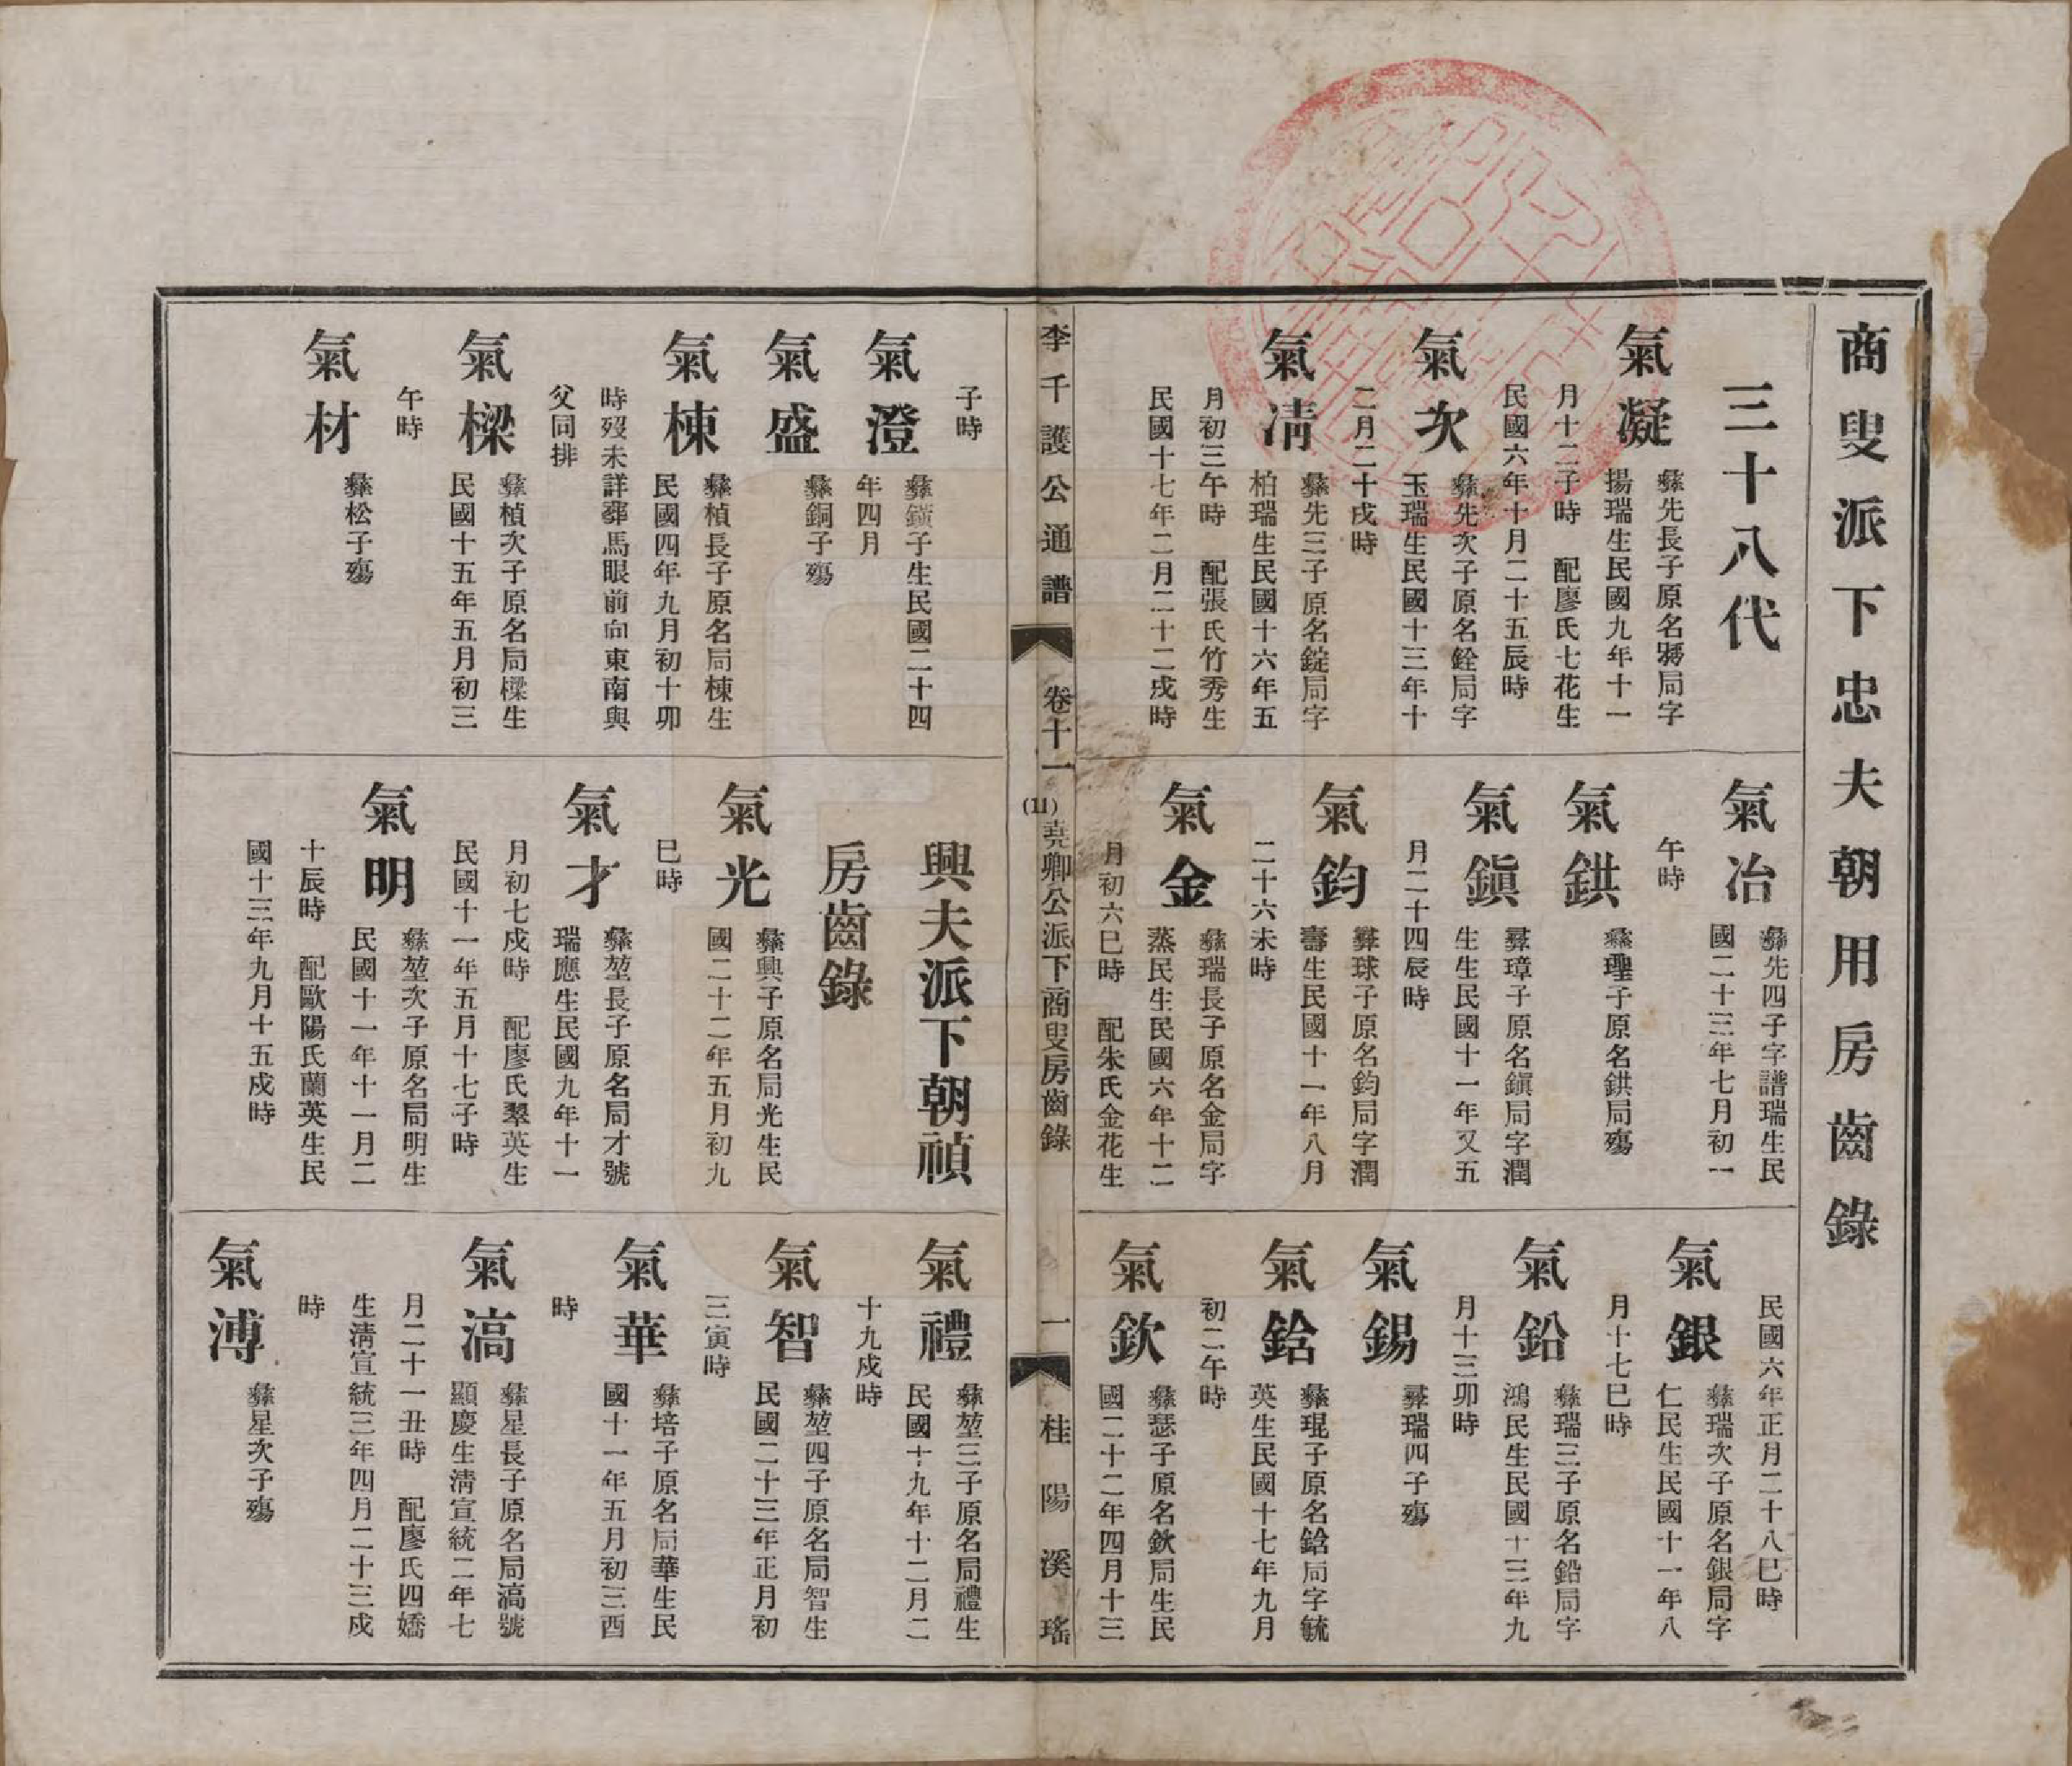 商叟派下忠夫朝用房齒錄
三十八代
氣凝
彝先長子原名蔣局字
揚瑞生民國九年十一
月十二子時　配廖氏七花生
民國六年十月二十五辰時
氣次
彝先次子原名銓局字
玉瑞生民國十三年十
二月二十戌時
氣凊
彝先三子原名錠局字
柏瑞生民國十六年五
月初三午時　配張氏竹秀生
民國十七年二月二十二戌時
氣冶
彝先四子字譜瑞生民
國二十三年七月初一
午時
氣鉷
彝瓂子原名鉷局殤
氣鎭
彝璋子原名鎭局字潤
生生民國十一年又五
月二十四辰時
氣鈞
彝球子原名鈞局字潤
壽生民國十一年八月
二十六未時
氣金
彝瑞長子原名金局字
蒸民生民國六年十二
月初六巳時　配朱氏金花生
民國六年正月二十八巳時
氣銀
彝瑞次子原名銀局字
仁民生民國十一年八
月十七巳時
氣鉛
彝瑞三子原名鉛局字
鴻民生民國十三年九
月十三卯時
氣錫
彝瑞四子殤
氣鋡
彝琨子原名鋡局字毓
英生民國十七年九月
初二午時
氣欽
彝瑟子原名欽局生民
國二十二年四月十三
李千護公通譜
卷十一
(11)
堯卿公派下商叟房齒錄
一
桂陽溪瑤
子時
氣澄
彝鐀子生民國二十四
年四月
氣盛
彝銅子殤
氣棟
彝楨長子原名局棟生
民國四年九月初十卯
時歿未詳葬馬眼前向東南與
父同排
氣樑
彝楨次子原名局樑生
民國十五年五月初三
午時
氣材
彝松子殤
興夫派下朝禎
房齒錄
氣光
彝興子原名局光生民
國二十二年五月初九
巳時
氣才
彝堃長子原名局才號
瑞應生民國九年十一
月初七戍時　配廖氏翠英生
民國十一年五月十七子時
氣明
彝堃次子原名局明生
民國十一年十一月二
十辰時　配歐陽氏蘭英生民
國十三年九月十五戍時
氣禮
彝堃三子原名局禮生
民國十九年十二月二
十九戍時
氣智
彝堃四子原名局智生
民國二十三年正月初
三寅時
氣華
彝培子原名局華生民
國十一年五月初三酉
時
氣滈
彝星長子原名局滈號
顯慶生淸宣統二年七
月二十一丑時　配廖氏四嬌
生淸宣統三年四月二十三戍
時
氣溥
彝星次子殤